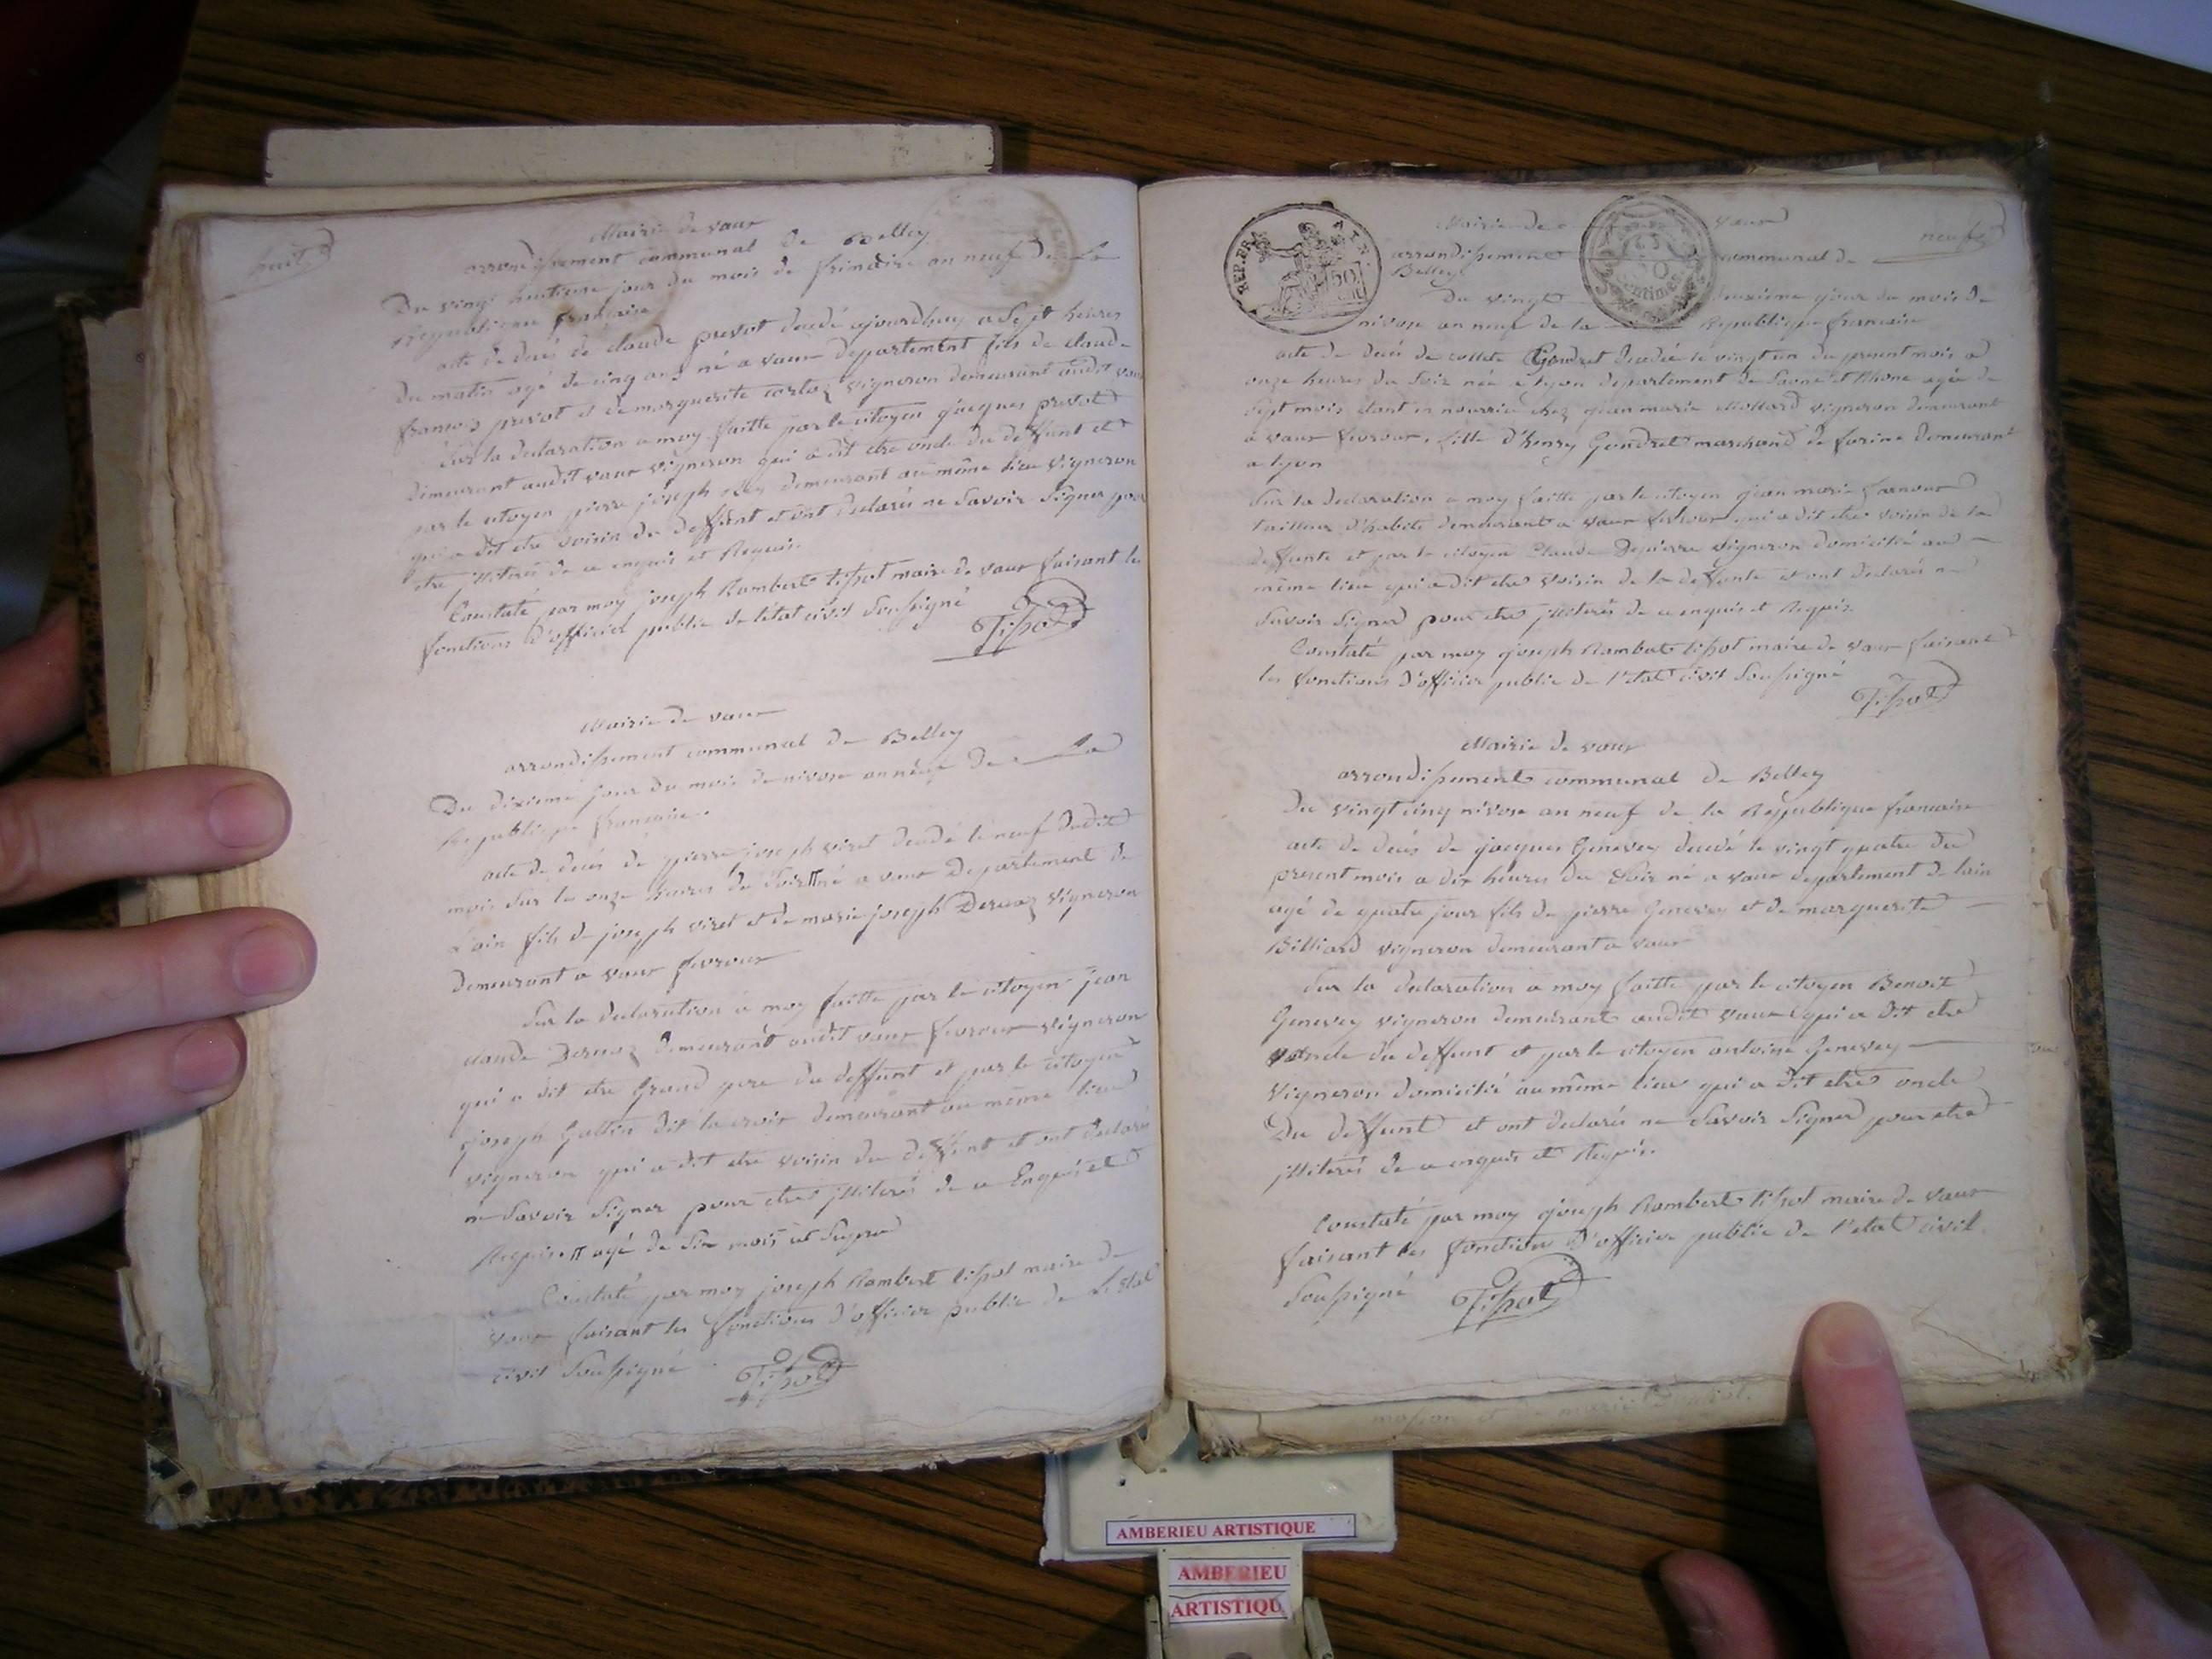 huit
Mairie de vaux
arrondissement communal de Belley
Du vingt huitieme jour du mois de frimaire an neuf de La
Republique française
acte de decés de claude prevot decedé ajourdhuy a Sept heures
du matin agé de cinq ans né a vaux departement fils de claude
françois prevot et de marguerite cortoz vigneron demeurant audit vaux
Sur la declaration a moy faitte par le citoyen jacques prevot
demeurant audit vaux vigneron qui a dit etre oncle du deffunt et
par le citoyen pierre joseph demeurant au même lieu vigneron
qui a dit etre voisin du deffunt et ont declarés ne Savoir Signer pour
etre illiterés de ce enquis et Requis.
Constaté par moy joseph Rambert tissot maire de vaux faisant les
fonctions d'officier public de letat civil Soussigné
Tissot
Mairie de vaux
arrondissement communal de Belley
Du dixieme jour du mois de nivose an neuf de La
Republique française.
acte de decés de pierre joseph viret decedé le neuf dudit
mois Sur les onze heures du Soir né a vaux Departement de
L'ain fils de joseph viret et de marie joseph Dervaz vigneron
demeurant a vaux fevroux
Sur la declaration a moy faitte par le citoyen jean
claude Dervaz demeurant audit vaux fevroux vigneron
qui a dit etre Grand pere du deffunt et par le citoyen
joseph Gullin dit lacroix demeurant au même lieu
vigneron qui a dit etre voisin du deffunt et ont declaré
ne Savoir Signer pour etre illiterés de ce Enquis et
Requis. agé de Six mois
Constaté par moy joseph Rambert tissot maire de
vaux faisant les fonctions d'officier public de L'Etat
civil Soussigné
Tissot
REP. FRA
50
AIN
25
Centimes
Mairie de vaux
neuf
arrondissement communal de
Belley
Du vingt deuxieme jour du mois de
nivose an neuf de la Republique francaise
acte de decés de collete Gondret decedée le vingt un du present mois a
onze heures du Soir née a lyon departement de Saone et Rhone agée de
Sept mois etant en nourrice chez jean marie Mollard vigneron demeurant
a vaux fevroux, fille d'henry Gondret marchand de farine demeurant
a lyon
Sur la declaration a moy faitte par le citoyen jean marie
tailleur d'habits demeurant a vaux fevroux qui a dit etre voisin de la
deffunte et par le citoyen Claude Depierre vigneron domicilié au
même lieu qui a dit etre voisin de la deffunte et ont declarés ne
Savoir Signer pour etre illiterés de ce enquis et Requis.
Constaté par moy joseph Rambert tissot maire de vaux faisant
les fonctions d'officier public de l'etat civil Soussigné
Tissot
Mairie de vaux
arrondissement communal de Belley
Du vingt cinq nivose an neuf de la Republique francaise
acte de decés de jacques Genevey decedé le vingt quatre du
present mois a dix heures du Soir né a vaux departement de lain
agé de quatre jour fils de pierre Genevey et de marguerite
Billiard vigneron demeurant a vaux
Sur la declaration a moy faitte par le citoyen Benoit
Genevey vigneron demeurant audit vaux qui a dit etre
oncle du deffunt et par le citoyen antoine Genevey
vigneron domicilié au même lieu qui a dit etre oncle
Du deffunt et ont declarés ne Savoir Signer pour etre
illiterés de ce enquis et Requis.
Constaté par moy joseph Rambert tissot maire de vaux
faisant les fonctions d'officier public de l'etat civil
Soussigné
Tissot
AMBERIEU ARTISTIQUE
AMBERIEU
ARTISTIQU